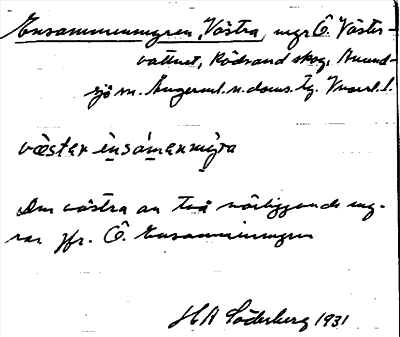 Ensammenmyren, Västra, myr Ö. Väster-
vattnet, Rödsand skog, Anund-
sjö sn. Ångerml. n. doms. tg. Vnorrl. l.
väster ensámenmyra
Den västra av två närliggande my-
rar jfr. Ö. Ensammenmyren
H A Söderberg 1931